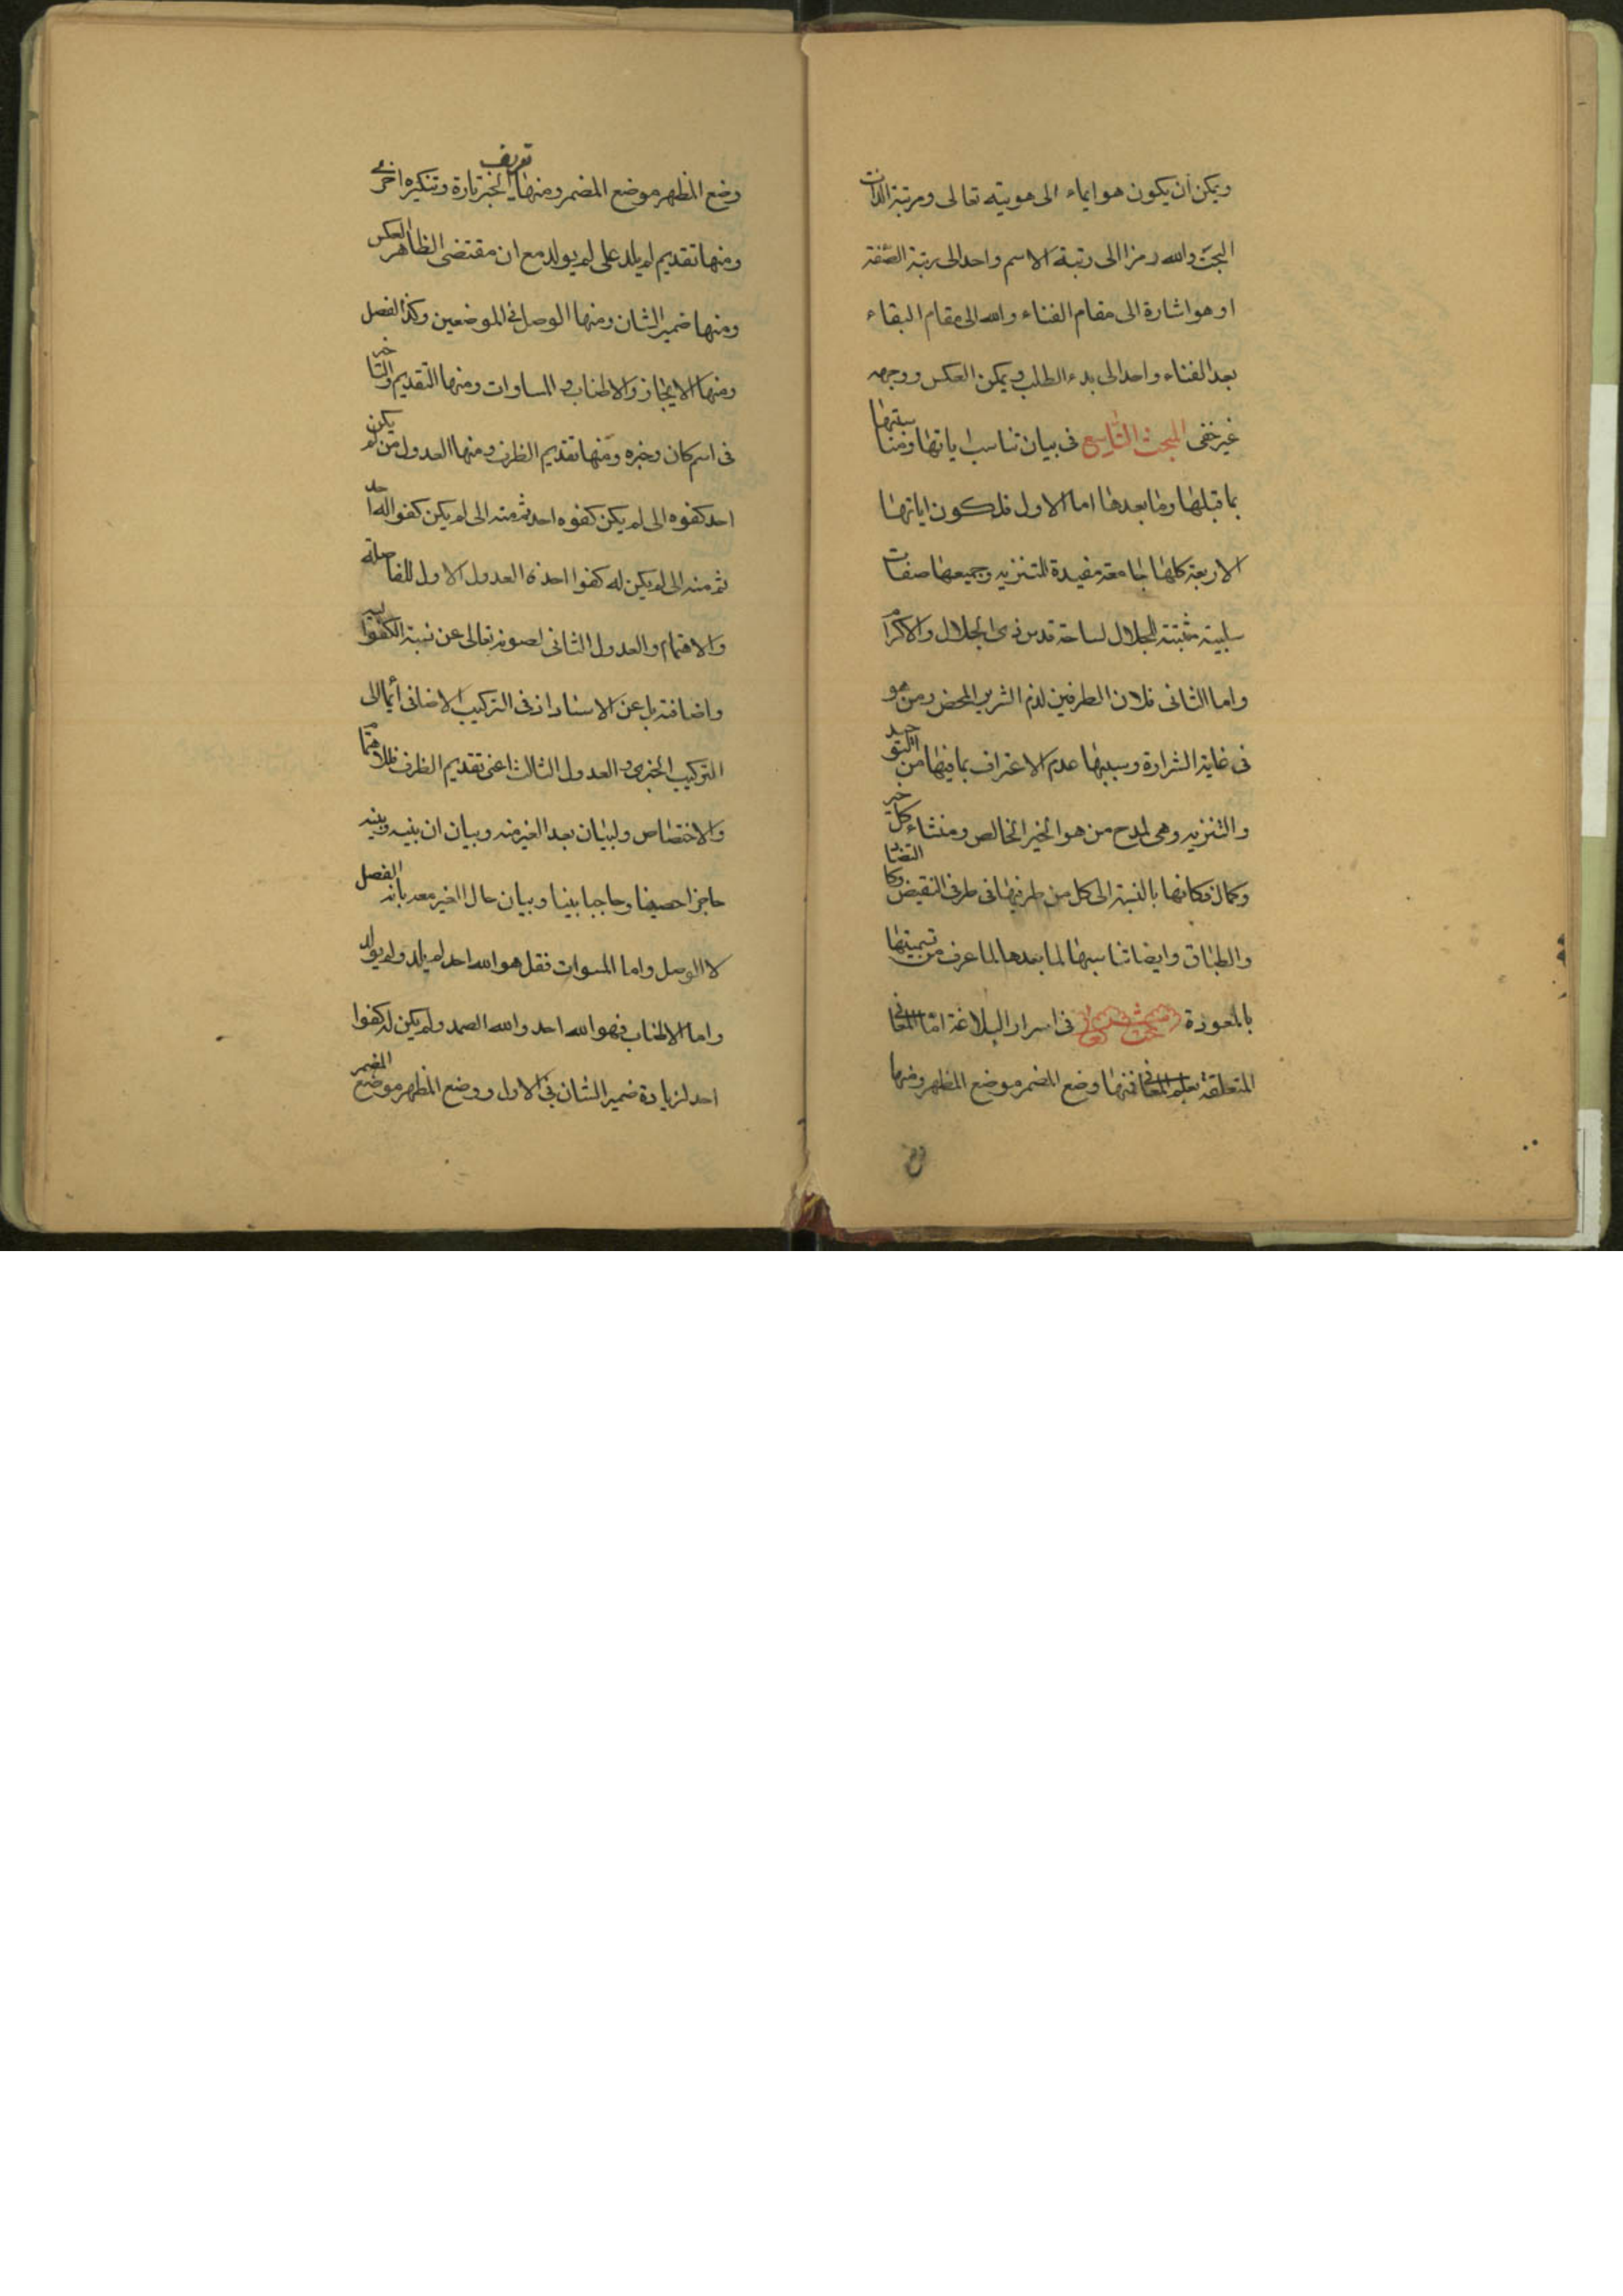 ويمكن أن يكون هو ايماء الى هويته تعالى ومرتبة الذات
البحت والله رمزا الى رتبة الاسم واحد الى رتبة الصفة
او هو اشارة الى مقام الفناء والله الى مقام البقاء
بعد الفناء واحد الى بدء الطلب ويمكن العكس ووجهه
غير خفى المبحث التاسع فى بيان تناسب اياتها ومناسبتها
بما قبلها وما بعدها اما الاول فلكون اياتها
الاربعة كلها جامعة مفيدة للتنزيه وجميعها صفات
سلبية مثبتة للجلال لساحة قدس ذى الجلال والاكرام
واما الثانى فلان الطرفين لذم الشرير المحض ومن هو
فى غاية الشرارة وسببها عدم الاعتراف بما فيها من التوحيد
والتنزيه وهى لمدح من هو الخير الخالص ومنشاء كل خير
وكمال فكانها بالنسبة الى كل من طرفيها فى طرفى النقيض وكا التضا
والطباق وايضا تناسبها لما بعدها لما عرف من تسميتها
بالمعوذة فى اسرار البلاغة اما المعانى
المتعلقة بعلم المعانى فمنها وضع المضمر موضع المظهر ومنها
وضع المظهر موضع المضمر ومنها تعريف الخبر تارة وتنكيره اخرى
ومنها تقديم لم يلد على لم يولد مع ان مقتضى الظاهر العكس
ومنها ضمير الشان ومنها الوصل فى الموضعين وكذا الفصل
ومنها الايجاز والاطناب والمساوات ومنها التقديم والتاخير
فى اسم كان وخبره ومنها تقديم الظرف ومنها العدول من لم يكن
احد كفوه الى لم يكن كفوه احد ثم منه الى لم يكن كفوا له احد
ثم منه الى لم يكن له كفوا احد فالعدول الاول للفاصلة
والاهتمام والعدول الثانى لصونه تعالى عن نسبة الكفو اليه
واضافته بل عن الاسناد اذ فى التركيب الاضافى أيما الى
التركيب الخبرى والعدول الثالث اعنى تقديم الظرف فللاهتمام
والاختصاص ولبيان بعد الغير منه وبيان ان بينه وبينه
حاجزا حصينا وحاجبا بينا وبيان حال الغير معه بانه الفصل
لا الوصل واما المسوات فقل هو الله احد لم يلد ولم يولد
واما الاطناب فهو الله احد والله الصمد ولم يكن له كفوا
احد لزيادة ضمير الشان فى الاول ووضع المظهر موضع المضمر